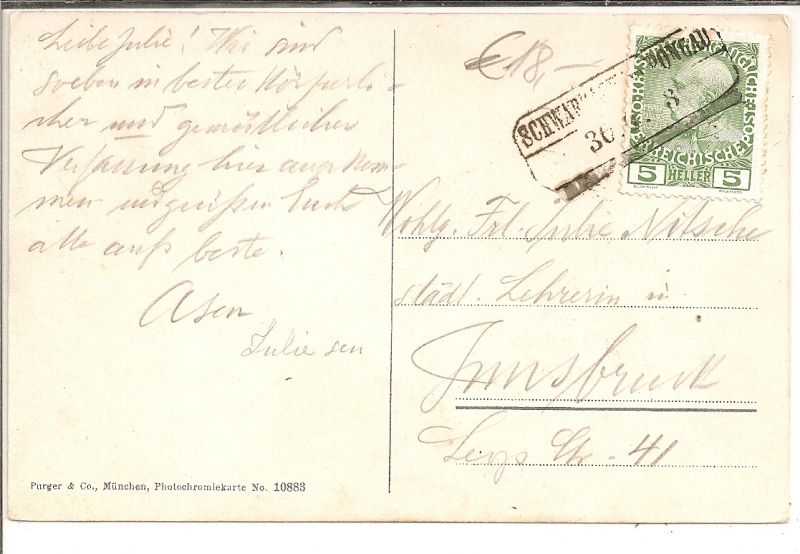 Liebe Julie! Wir sind
soeben in bester Körperli-
cher und gemütlicher
Verfassung hier angekom-
men und grüßen Euch
alle aufs beste.
Asen
Julie sen
€ 18,-
SCHWARZACH PONGAU
30. 8
5 HELLER 5
Wohlg. Frl. Julie Nitsche
städt. Lehrerin in
Innsbruck
Leop Str. 41
Purger & Co., München, Photochromiekarte No. 10883